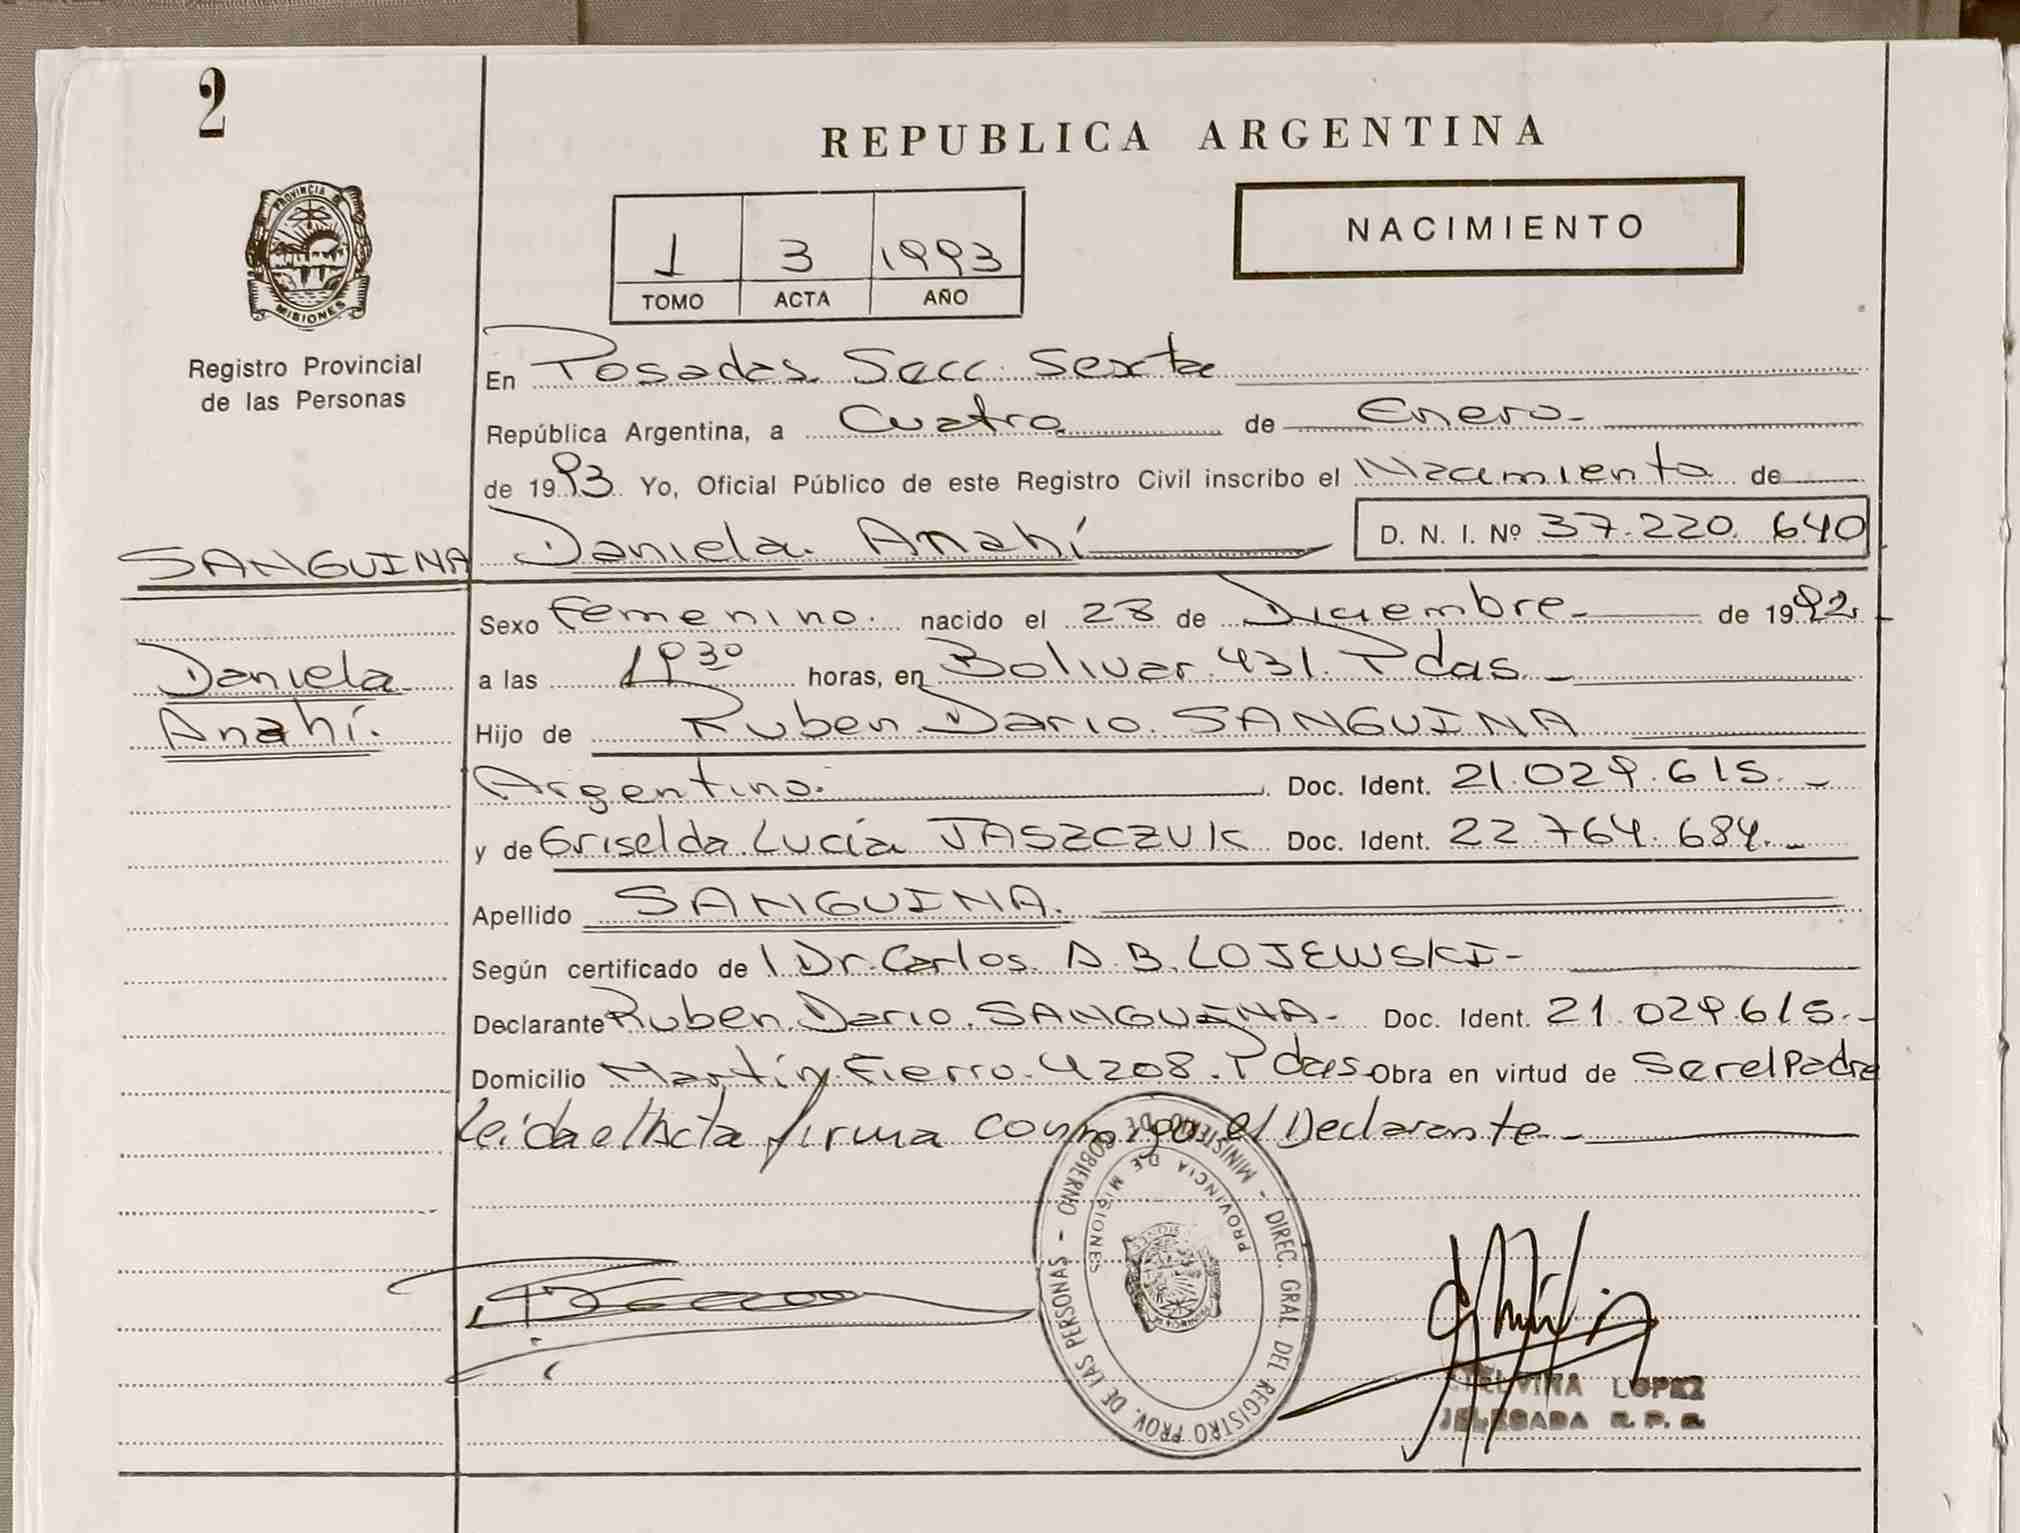 2
REPUBLICA ARGENTINA
PROVINCIA DE
MISIONES
1 3 1993
TOMO ACTA AÑO
NACIMIENTO
Registro Provincial
de las Personas
En Posadas Secc. Sexta
República Argentina, a Cuatro de Enero
de 1993 Yo, Oficial Público de este Registro Civil inscribo el Nacimiento de
SANGUINA Daniela Anahí D. N. I. Nº 37.220.640
Sexo Femenino. nacido el 28 de Diciembre de 1992.
Daniela a las 19 30 horas, en Bolivar 431. Pdas
Anahí. Hijo de Ruben Dario SANGUINA
Argentino. Doc. Ident. 21.029.615.
y de Griselda Lucía JASZCZUK Doc. Ident. 22.764.684.
Apellido SANGUINA.
Según certificado de l Dr. Carlos A. B. LOJEWSKI-
Declarante Ruben Dario SANGUINA- Doc. Ident. 21.029.615.-
Domicilio Martín Fierro 4208. Pdas Obra en virtud de Ser el Padre
Leída el Acta firma conmigo el Declarante
MINISTERIO DE GOBIERNO - DIREC. GRAL. DEL REGISTRO PROV. DE LAS PERSONAS -
PROVINCIA DE MISIONES
LOPEZ
DELEGADA R. P. P.